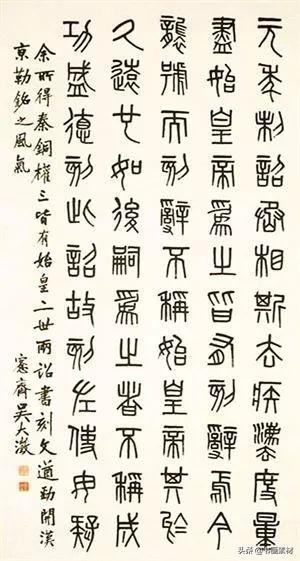 元年制詔丞相斯去疾灋度量
盡始皇帝為之皆有刻辭焉今
襲號而刻辭不稱始皇帝其於
久遠也如後嗣為之者不稱成
功盛德刻此詔故刻左使毋疑
余所得秦銅權三皆有始皇二世兩詔書刻文遒勁開漢
京勒銘之風氣 愙齋吳大澂
头条 @书画素材